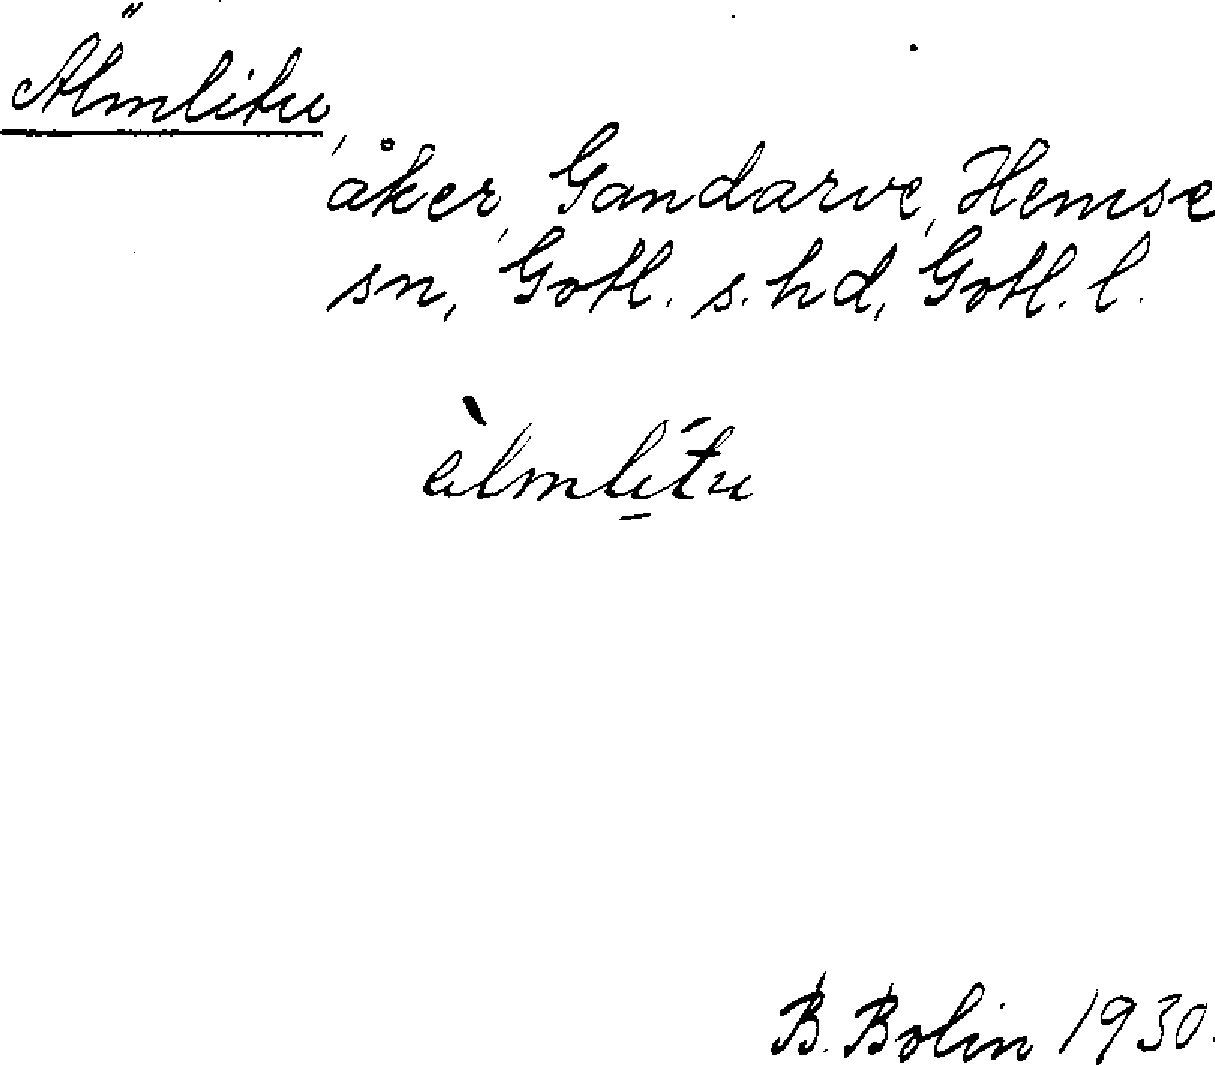 Älmlitu,
åker, Gandarve, Hemse
sn, Gotl. s. hd, Gotl. l.
älmlitu
B. Bolin 1930.